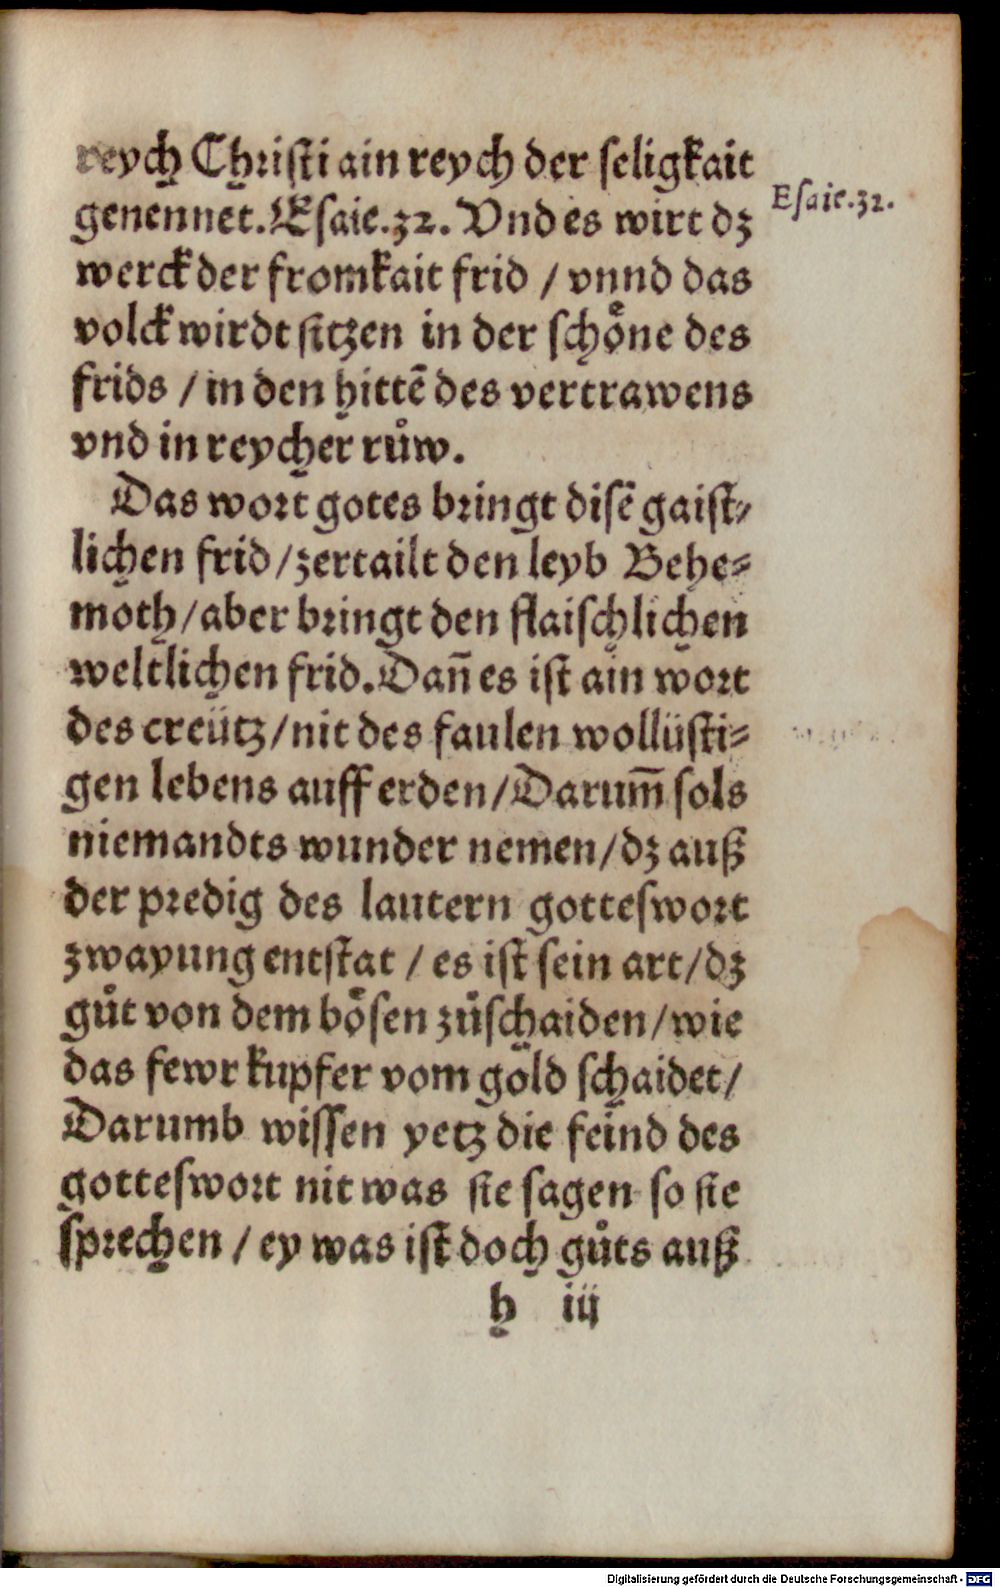 reych Christi ain reych der seligkait
genennet. Esaie. 32. Vnd es wirt dz
Esaie. 32.
werck der fromkait frid / vnnd das
volck wirdt sitzen in der schoͤne des
frids / in den hittẽ des vertrawens
vnd in reycher ruͦw.
Das wort gotes bringt disẽ gaist⸗
lichen frid / zertailt den leyb Behe⸗
moth / aber bringt den flaischlichen
weltlichen frid. Dan̄ es ist ain wort
des creütz / nit des faulen wollüsti⸗
gen lebens auff erden / Darum̄ sols
niemandts wunder nemen / dz auß
der predig des lautern gotteswort
zwayung entstat / es ist sein art / dz
guͦt von dem boͤsen zuͦschaiden / wie
das fewr kupfer vom goͤld schaidet /
Darumb wissen yetz die feind des
gotteswort nit was sie sagen so sie
sprechen / ey was ist doch guͦts auß
h iij
Digitalisierung gefördert durch die Deutsche Forschungsgemeinschaft - DFG